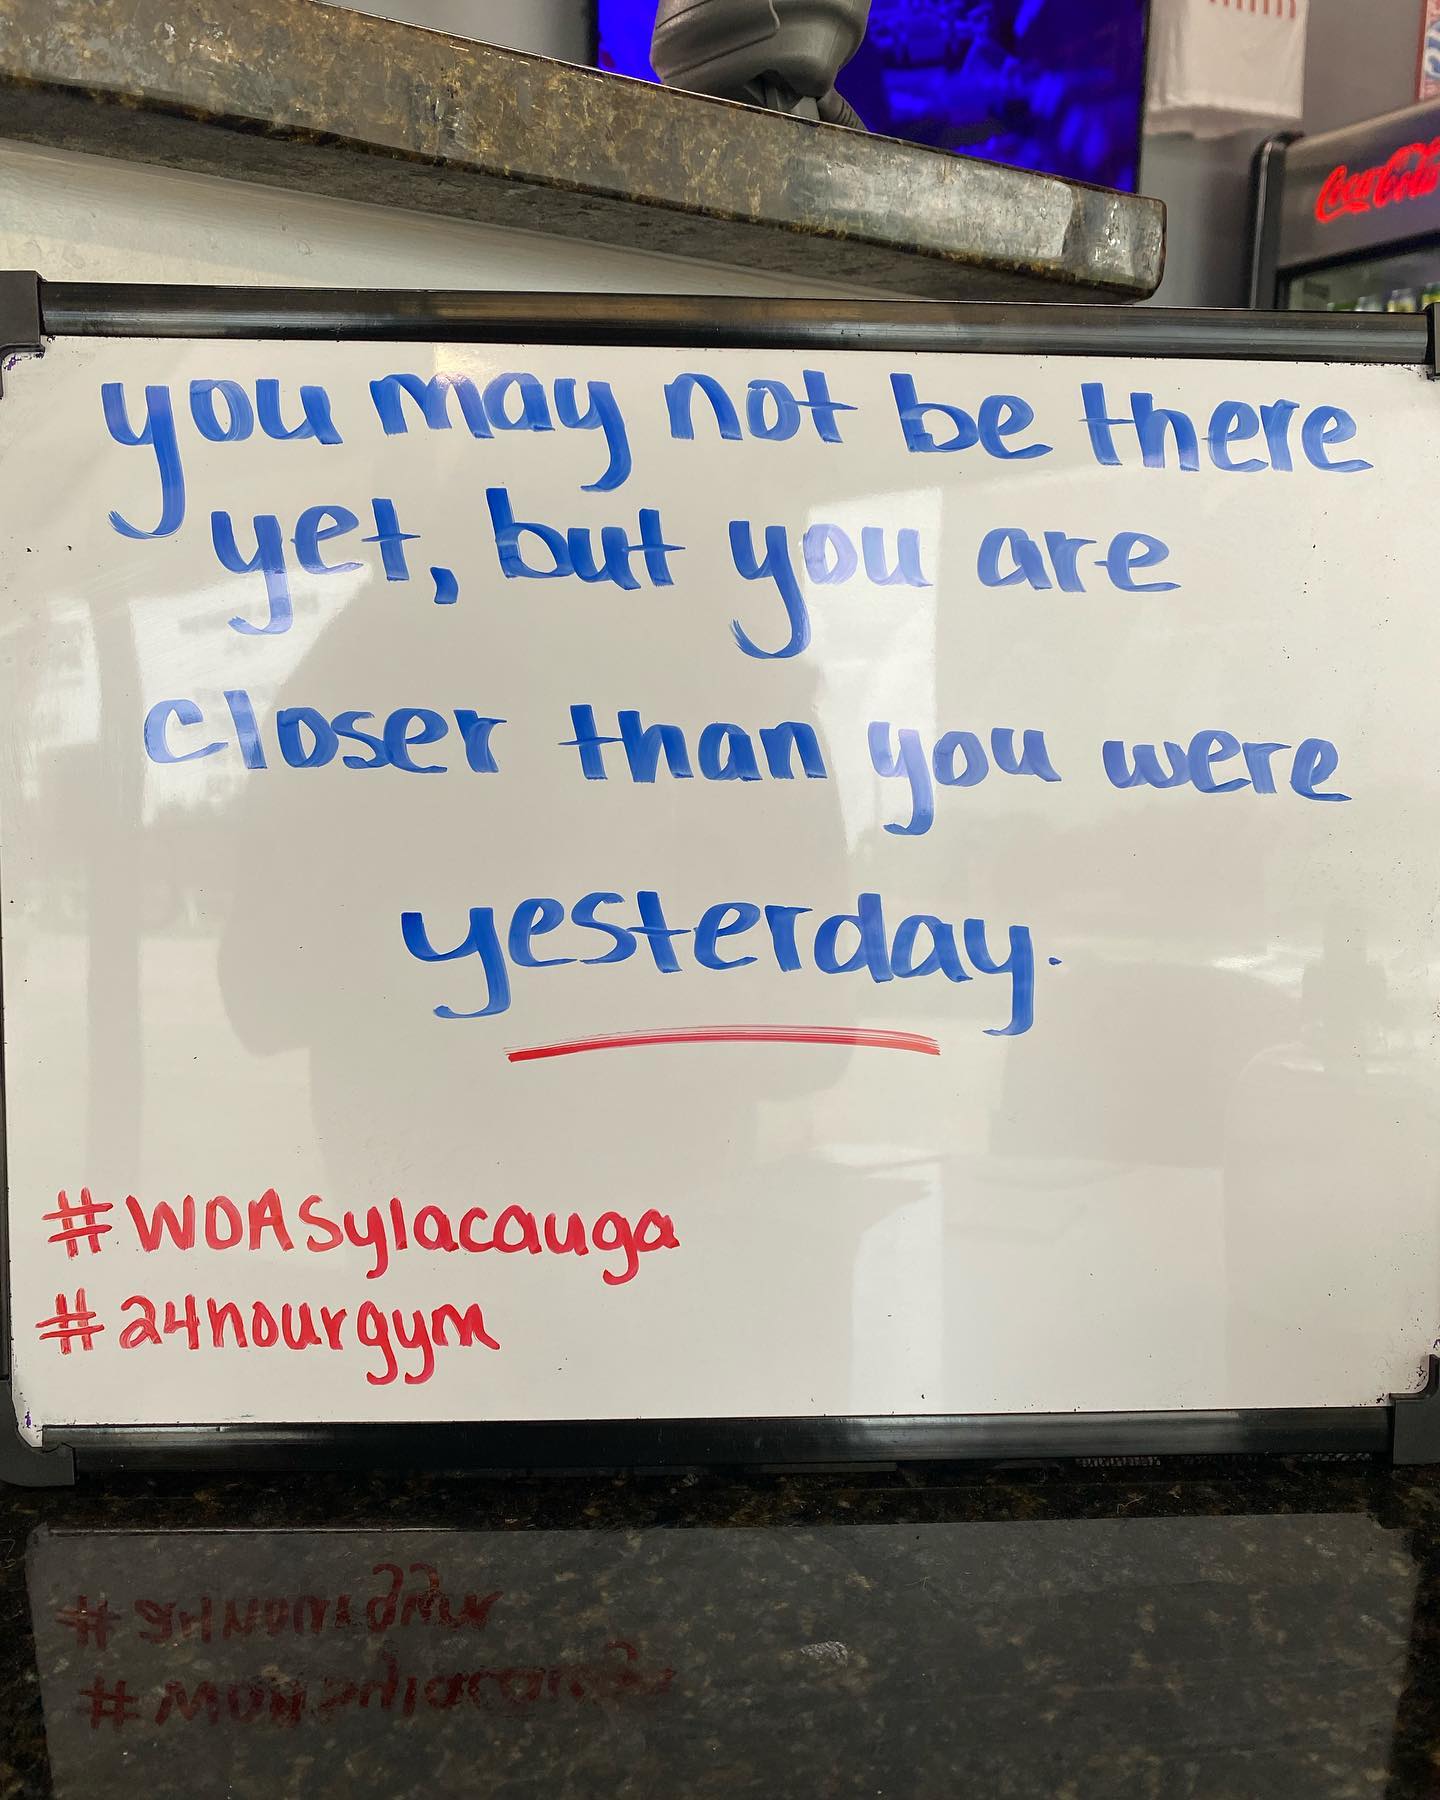 Coca-Cola
you may not be there
yet, but you are
closer than you were
yesterday.
#WOASylacauga
#24hourgym